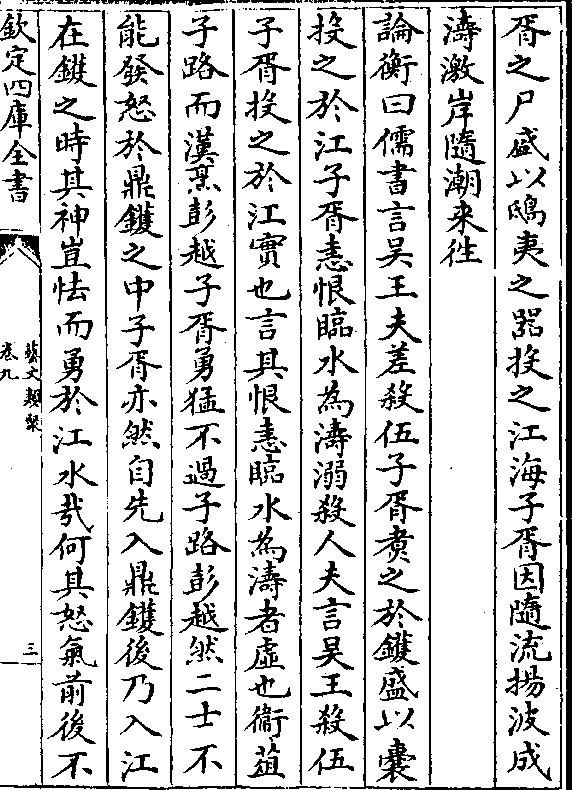 胥之尸盛以鴟夷之器投之江海子胥因隨流揚波成
濤激岸隨潮来往
論衡曰儒書言吳王夫差殺伍子胥煑之於鑊盛以囊
投之於江子胥恚恨臨水為濤溺殺人夫言吳王殺伍
子胥投之於江實也言其恨恚臨水為濤者虛也衞葅
子路而漢烹彭越子胥勇猛不過子路彭越然二士不
能發怒於鼎鑊之中子胥亦然自先入鼎鑊後乃入江
在鑊之時其神豈怯而勇於江水㢤何其怒氣前後不
欽定四庫全書
藝文類聚
卷九
三